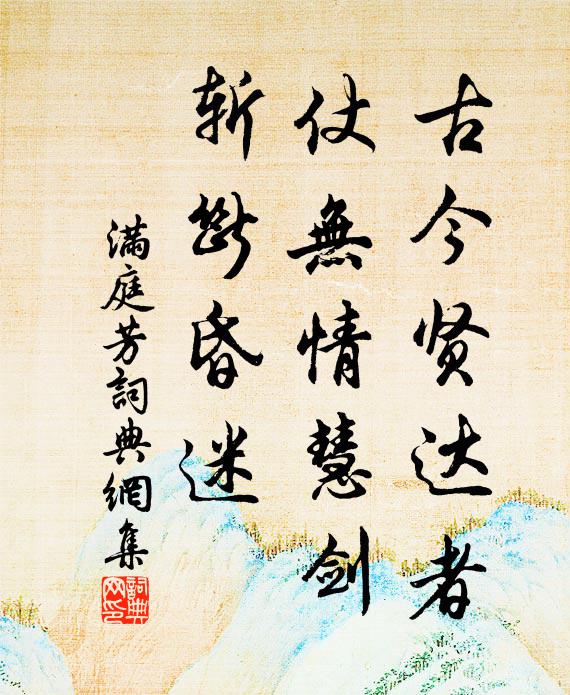 古今贤达者
仗無情慧剑
斬斷昏迷
满庭芳詞典網集
詞典
网印